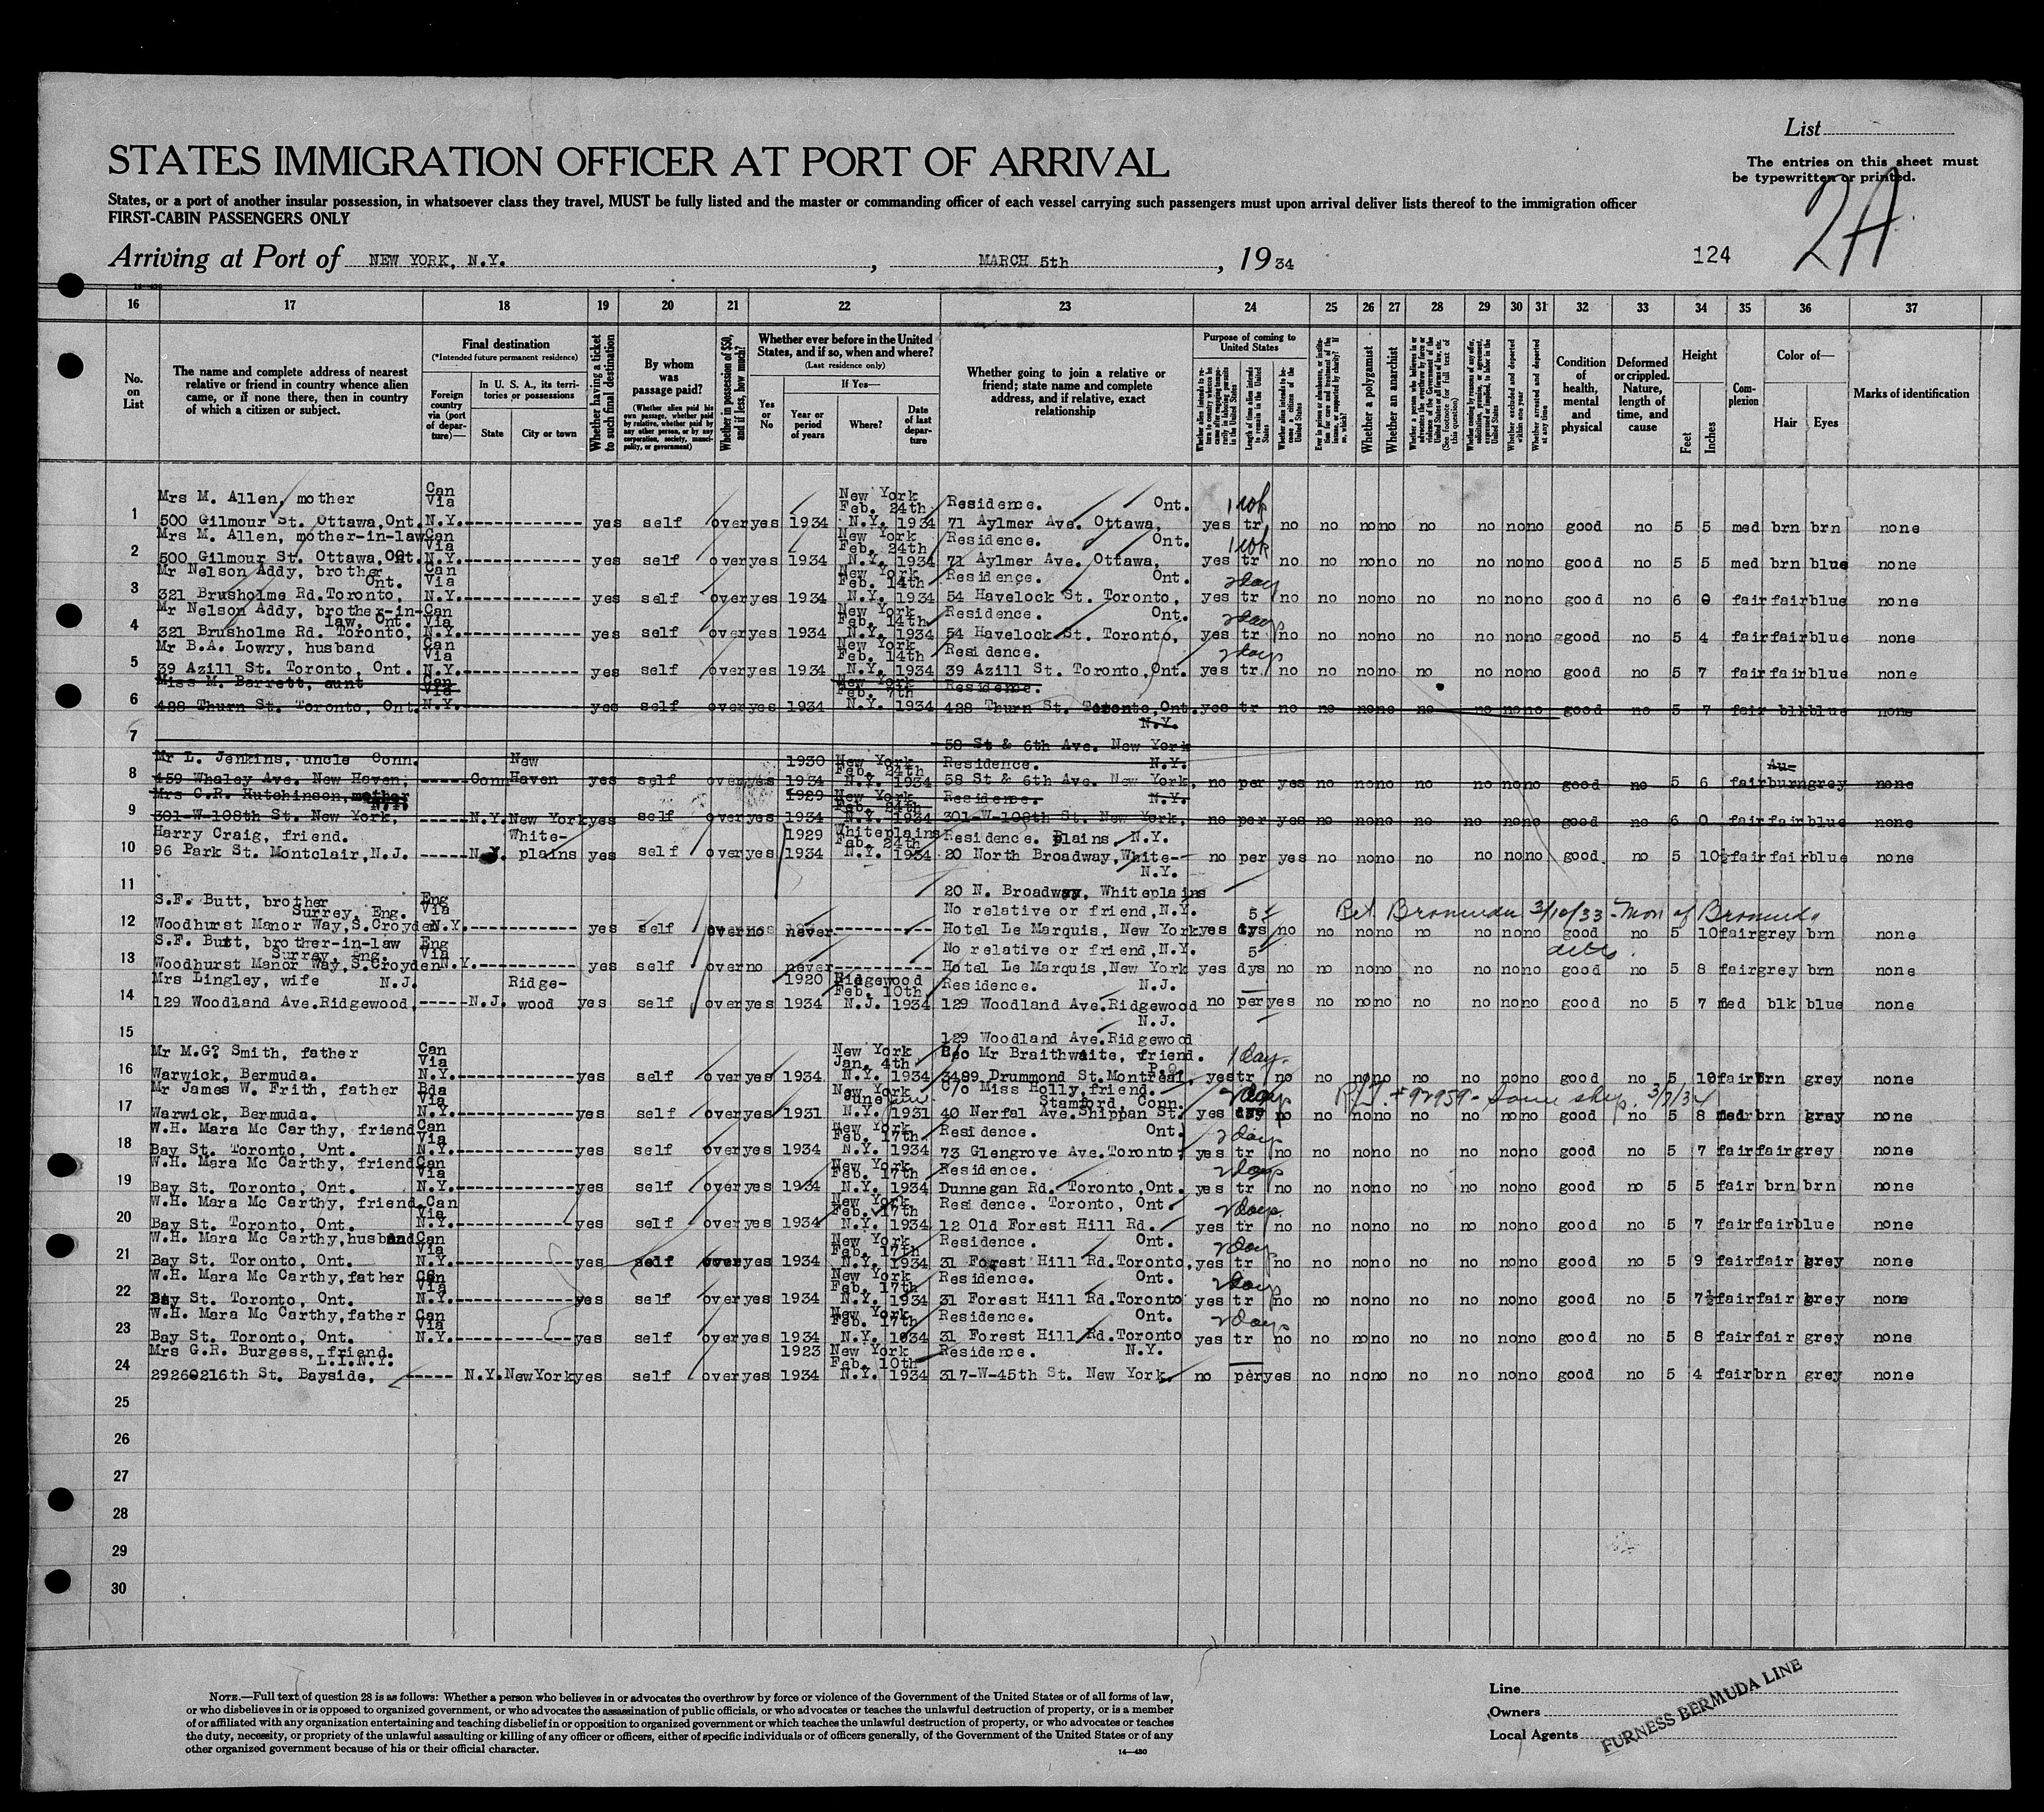 List
STATES IMMIGRATION OFFICER AT PORT OF ARRIVAL
The entries on this sheet must
be typewritten or printed.
2A
States, or a port of another insular possession, in whatsoever class they travel, MUST be fully listed and the master or commanding officer of each vessel carrying such passengers must upon arrival deliver lists thereof to the immigration officer
FIRST-CABIN PASSENGERS ONLY
Arriving at Port of NEW YORK, N.Y. , MARCH 5th , 1934
124
16 17 18 19 20 21 22 23 24 25 26 27 28 29 30 31 32 33 34 35 36 37
No. on List
The name and complete address of nearest relative or friend in country whence alien came, or if none there, then in country of which a citizen or subject.
Final destination
(*Intended future permanent residence)
Foreign country via (port of departure)—
In U. S. A., its territories or possessions
State
City or town
Whether having a ticket to such final destination
By whom was passage paid?
(Whether alien paid his own passage, whether paid by relative, whether paid by any other person, or by any corporation, society, municipality, or government)
Whether in possession of $50, and if less, how much?
Whether ever before in the United States, and if so, when and where?
(Last residence only)
Yes or No
If Yes—
Year or period of years
Where?
Date of last departure
Whether going to join a relative or friend; state name and complete address, and if relative, exact relationship
Purpose of coming to United States
Length of time alien intends to remain in the United States
Whether alien intends to become a citizen of the United States
Whether a polygamist
Whether an anarchist
Whether excluded and deported within one year
Whether arrested and deported at any time
Condition of health, mental and physical
Deformed or crippled. Nature, length of time, and cause
Height
Feet
Inches
Complexion
Color of—
Hair
Eyes
Marks of identification
Mrs M. Allen, mother Can Via New York Feb. 24th Residence. Ont. 1 wk
1 500 Gilmour St. Ottawa, Ont. N.Y. yes self over yes 1934 N.Y. 1934 71 Aylmer Ave. Ottawa, yes tr no no no no no no no no good no 5 5 med brn brn none
Mrs M. Allen, mother-in-law Can Via New York Feb. 24th Residence. Ont. 1 wk
2 500 Gilmour St. Ottawa, Ont. N.Y. yes self over yes 1934 N.Y. 1934 71 Aylmer Ave. Ottawa, yes tr no no no no no no no no good no 5 5 med brn blue none
Mr Nelson Addy, brother Ont. Can Via New York Feb. 14th Residence. Ont. 2 days
3 321 Brusholme Rd. Toronto, N.Y. yes self over yes 1934 N.Y. 1934 54 Havelock St. Toronto, yes tr no no no no no no no no good no 6 0 fair fair blue none
Mr Nelson Addy, brother-in-law, Ont. Can Via New York Feb. 14th Residence. Ont. 2 days
4 321 Brusholme Rd. Toronto, N.Y. yes self over yes 1934 N.Y. 1934 54 Havelock St. Toronto, yes tr no no no no no no no no good no 5 4 fair fair blue none
Mr B.A. Lowry, husband Can Via New York Feb. 14th Residence. 2 days
5 39 Azill St. Toronto, Ont. N.Y. yes self over yes 1934 N.Y. 1934 39 Azill St. Toronto, Ont. yes tr no no no no no no no no good no 5 7 fair fair blue none
Miss M. Barrett, aunt Can Via New York Feb. 7th Residence.
6 428 Thurn St. Toronto, Ont. N.Y. yes self over yes 1934 N.Y. 1934 428 Thurn St. Toronto, Ont. yes tr no no no no no no no no good no 5 7 fair blk blue none
N.Y.
7 58 St & 6th Ave. New York
Mr L. Jenkins, uncle Conn. New 1930 New York Feb. 24th Residence. N.Y. Au-
8 459 Whaley Ave. New Haven, Conn Haven yes self over yes 1934 N.Y. 1934 58 St & 6th Ave. New York, no per yes no no no no no no no good no 5 6 fair burn grey none
Mrs C.R. Hutchinson, mother N.Y. 1929 New York Feb. 24th Residence. N.Y.
9 301-W-108th St. New York, N.Y. New York yes self over yes 1934 N.Y. 1934 301-W-108th St. New York, no per yes no no no no no no no good no 6 0 fair fair blue none
Harry Craig, friend. White- 1929 Whiteplains Feb. 24th Residence. Plains N.Y.
10 96 Park St. Montclair, N.J. N.Y. plains yes self over yes 1934 N.Y. 1934 20 North Broadway, White- no per yes no no no no no no no good no 5 10½ fair fair blue none
N.Y.
11 20 N. Broadway, Whiteplains
S.F. Butt, brother Surrey, Eng. Eng Via No relative or friend, N.Y. 5
12 Woodhurst Manor Way, S. Croyden N.Y. yes self over no never Hotel Le Marquis, New York yes dys no no no no no no no no good no 5 10 fair grey brn none
S.F. Butt, brother-in-law Surrey, Eng. Eng Via No relative or friend, N.Y. 5
13 Woodhurst Manor Way, S. Croyden N.Y. yes self over no never Hotel Le Marquis, New York yes dys no no no no no no no no good no 5 8 fair grey brn none
Mrs Lingley, wife N.J. Ridge- 1920 Ridgewood Feb. 10th Residence. N.J.
14 129 Woodland Ave. Ridgewood, N.J. wood yes self over yes 1934 N.J. 1934 129 Woodland Ave. Ridgewood no per yes no no no no no no no good no 5 7 med blk blue none
N.J.
15 129 Woodland Ave. Ridgewood
Mr M.G? Smith, father Can Via New York Jan. 4th C/o Mr Braithwaite, friend. P.Q. 1 day
16 Warwick, Bermuda. N.Y. yes self over yes 1934 N.Y. 1934 3489 Drummond St. Montreal, yes tr no no no no no no no no good no 5 10 fair brn grey none
Mr James W. Frith, father Bda Via New York June C/o Miss Holly, friend. Stamford, Conn. 2 days R/P. #92959 - Same ship 3/7/34
17 Warwick, Bermuda. N.Y. yes self over yes 1931 N.Y. 1931 40 Nerfal Ave. Shippan St. yes dys no no no no no no no no good no 5 8 med brn grey none
W.H. Mara Mc Carthy, friend Can Via New York Feb. 17th Residence. Ont. 2 days
18 Bay St. Toronto, Ont. N.Y. yes self over yes 1934 N.Y. 1934 73 Glengrove Ave. Toronto, yes tr no no no no no no no no good no 5 7 fair fair grey none
W.H. Mara Mc Carthy, friend Can Via New York Feb. 17th Residence. 2 days
19 Bay St. Toronto, Ont. N.Y. yes self over yes 1934 N.Y. 1934 Dunnegan Rd. Toronto, Ont. yes tr no no no no no no no no good no 5 5 fair brn brn none
W.H. Mara Mc Carthy, friend. Can Via New York Feb. 17th Residence. Toronto, Ont. 2 days
20 Bay St. Toronto, Ont. N.Y. yes self over yes 1934 N.Y. 1934 12 Old Forest Hill Rd. yes tr no no no no no no no no good no 5 7 fair fair blue none
W.H. Mara Mc Carthy, husband Can Via New York Feb. 17th Residence. Ont. 2 days
21 Bay St. Toronto, Ont. N.Y. yes self over yes 1934 N.Y. 1934 31 Forest Hill Rd. Toronto, yes tr no no no no no no no no good no 5 9 fair fair grey none
W.H. Mara Mc Carthy, father Can Via New York Feb. 17th Residence. Ont. 2 days
22 Bay St. Toronto, Ont. N.Y. yes self over yes 1934 N.Y. 1934 31 Forest Hill Rd. Toronto yes tr no no no no no no no no good no 5 7½ fair fair grey none
W.H. Mara Mc Carthy, father Can Via New York Feb. 17th Residence. Ont. 2 days
23 Bay St. Toronto, Ont. N.Y. yes self over yes 1934 N.Y. 1934 31 Forest Hill Rd. Toronto yes tr no no no no no no no no good no 5 8 fair fair grey none
Mrs G.R. Burgess, friend. L.I.N.Y. 1923 New York Feb. 10th Residence. N.Y.
24 29260216th St. Bayside, N.Y. New York yes self over yes 1934 N.Y. 1934 317-W-45th St. New York. no per yes no no no no no no no good no 5 4 fair brn grey none
25
26
27
28
29
30
NOTE.—Full text of question 28 is as follows: Whether a person who believes in or advocates the overthrow by force or violence of the Government of the United States or of all forms of law,
or who disbelieves in or is opposed to organized government, or who advocates the assassination of public officials, or who advocates or teaches the unlawful destruction of property, or is a member
of or affiliated with any organization entertaining and teaching disbelief in or opposition to organized government or which teaches the unlawful destruction of property, or who advocates or teaches
the duty, necessity, or propriety of the unlawful assaulting or killing of any officer or officers, either of specific individuals or of officers generally, of the Government of the United States or of any
other organized government because of his or their official character.
14—430
Line
Owners
Local Agents
FURNESS BERMUDA LINE